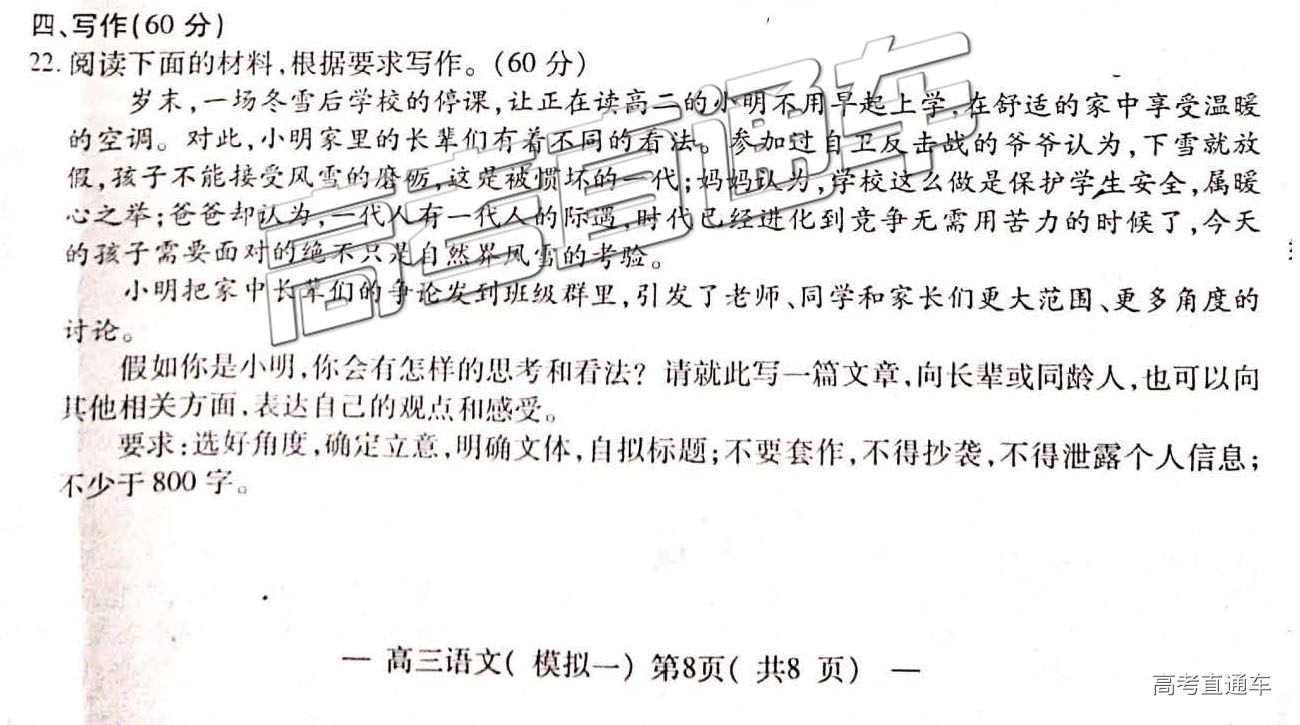 四、写作(60 分)
22. 阅读下面的材料,根据要求写作。(60 分)
岁末,一场冬雪后学校的停课,让正在读高二的小明不用早起上学,在舒适的家中享受温暖
的空调。对此,小明家里的长辈们有着不同的看法。参加过自卫反击战的爷爷认为,下雪就放
假,孩子不能接受风雪的磨砺,这是被惯坏的一代;妈妈认为,学校这么做是保护学生安全,属暖
心之举;爸爸却认为,一代人有一代人的际遇,时代已经进化到竞争无需用苦力的时候了,今天
的孩子需要面对的绝不只是自然界风雪的考验。
小明把家中长辈们的争论发到班级群里,引发了老师、同学和家长们更大范围、更多角度的
讨论。
假如你是小明,你会有怎样的思考和看法?请就此写一篇文章,向长辈或同龄人,也可以向
其他相关方面,表达自己的观点和感受。
要求:选好角度,确定立意,明确文体,自拟标题;不要套作,不得抄袭,不得泄露个人信息;
不少于 800 字。
高考直通车
— 高三语文( 模拟一) 第8页( 共8 页) —
高考直通车